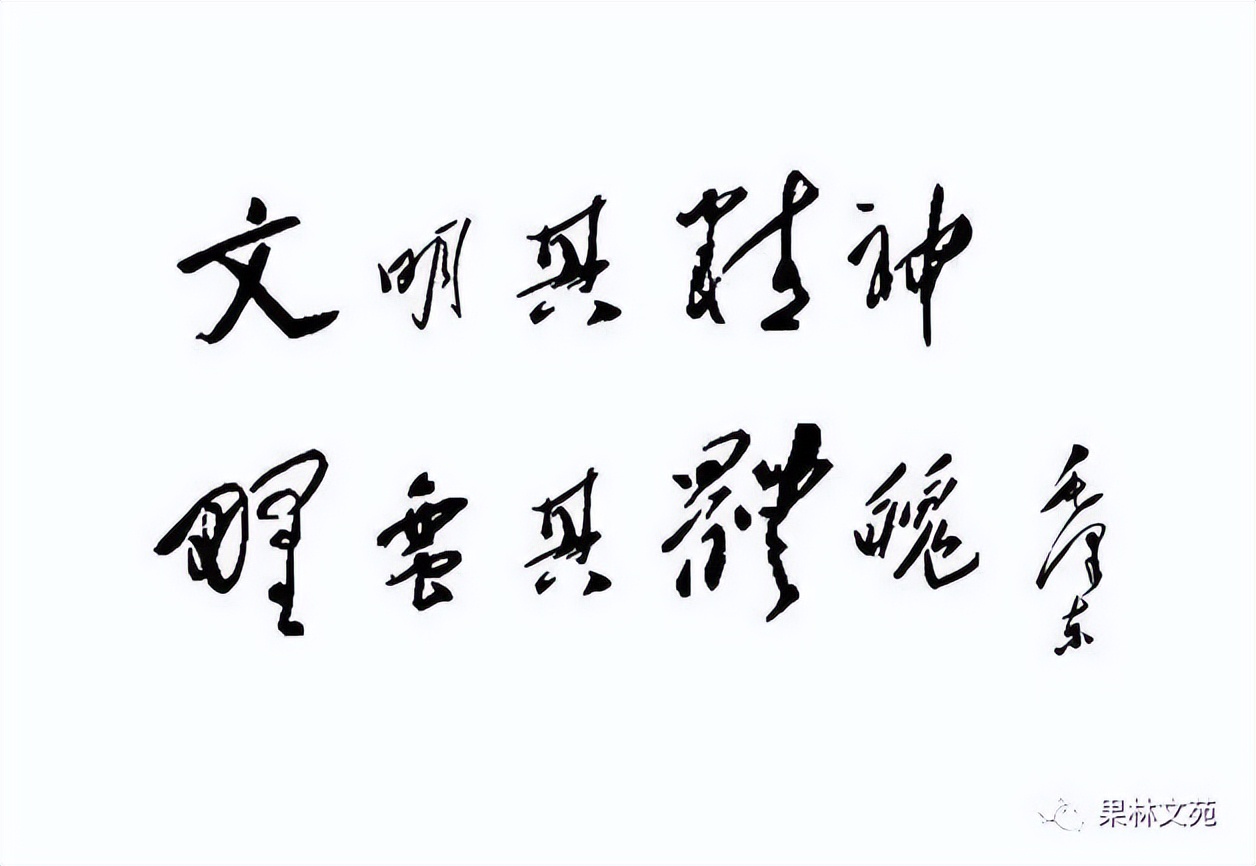 文明其精神
野蛮其體魄
毛泽东
果林文苑